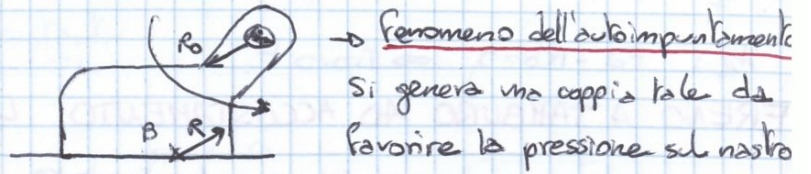 R₀ → fenomeno dell'autoimpuntament
si genera una coppia tale da
B R favorire la pressione sul nastro